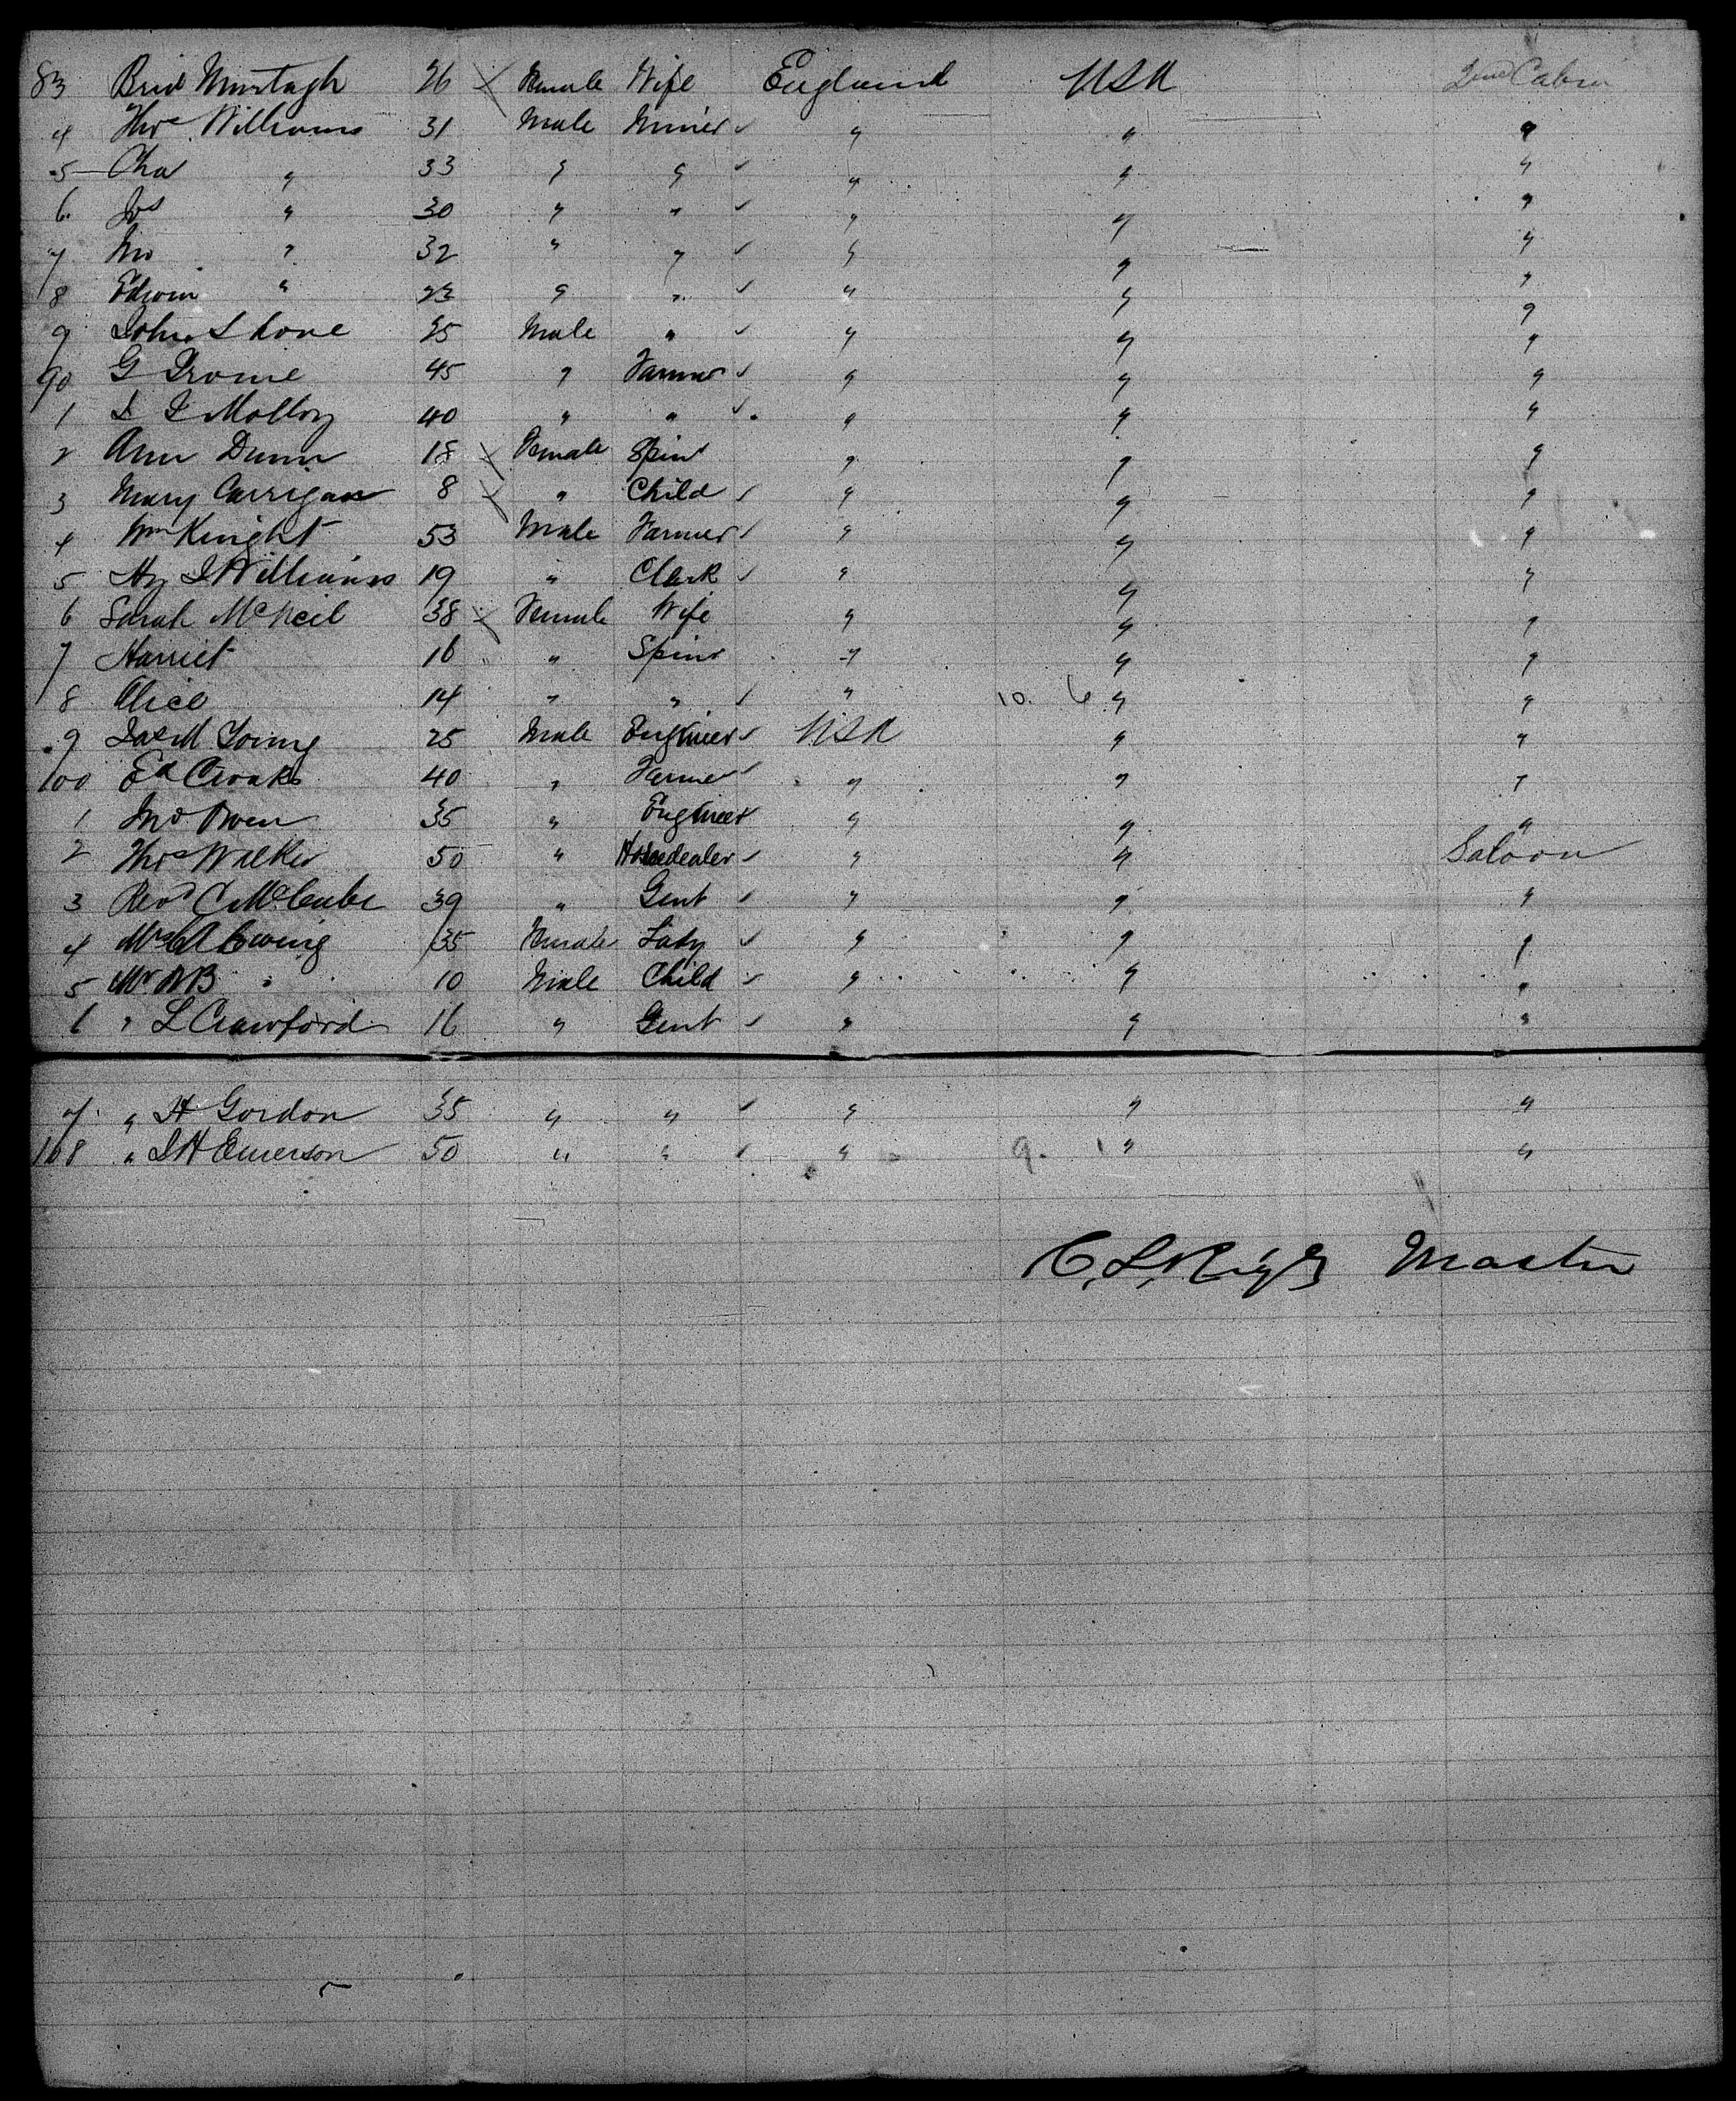 83 Brid Murtagh 26 Female Wife England USA 2nd Cabin
4 Thos Williams 31 Male Miner " " "
5 Cha " 33 " " " " "
6 Jos " 30 " " " " "
7 Jno " 32 " " " " "
8 Edwin " 22 " " " " "
9 John Shone 25 Male " " " "
90 G 45 " Farmer " " "
1 Molloy 40 " " " " "
2 Ann Dunn 18 Female Spinr " " "
3 Mary Carrigan 8 " Child " " "
4 Wm Knight 53 Male Farmer " " "
5 Hy J Williams 19 " Clark " " "
6 Sarah McNeil 38 Female Wife " " "
7 Harriet 16 " Spinr " " "
8 Alice 14 " " " 10. 6 " "
9 Jas M Young 25 Male Engineer USA " "
100 Ed Croake 40 " Farmer " " "
1 Jno Owen 35 " Engineer " " "
2 Thos Walker 50 " Horsedealer " " Saloon
3 Revd C McCabe 39 " Gent " " "
4 Mrs A Ewing 35 Female Lady " " "
5 Mr " 10 Male Child " " "
6 " L Crawford 16 " Gent " " "
7 " H Gordon 35 " " " " "
108 " J H Emerson 50 " " " 9. 1 " "
C, L, Rigby Master